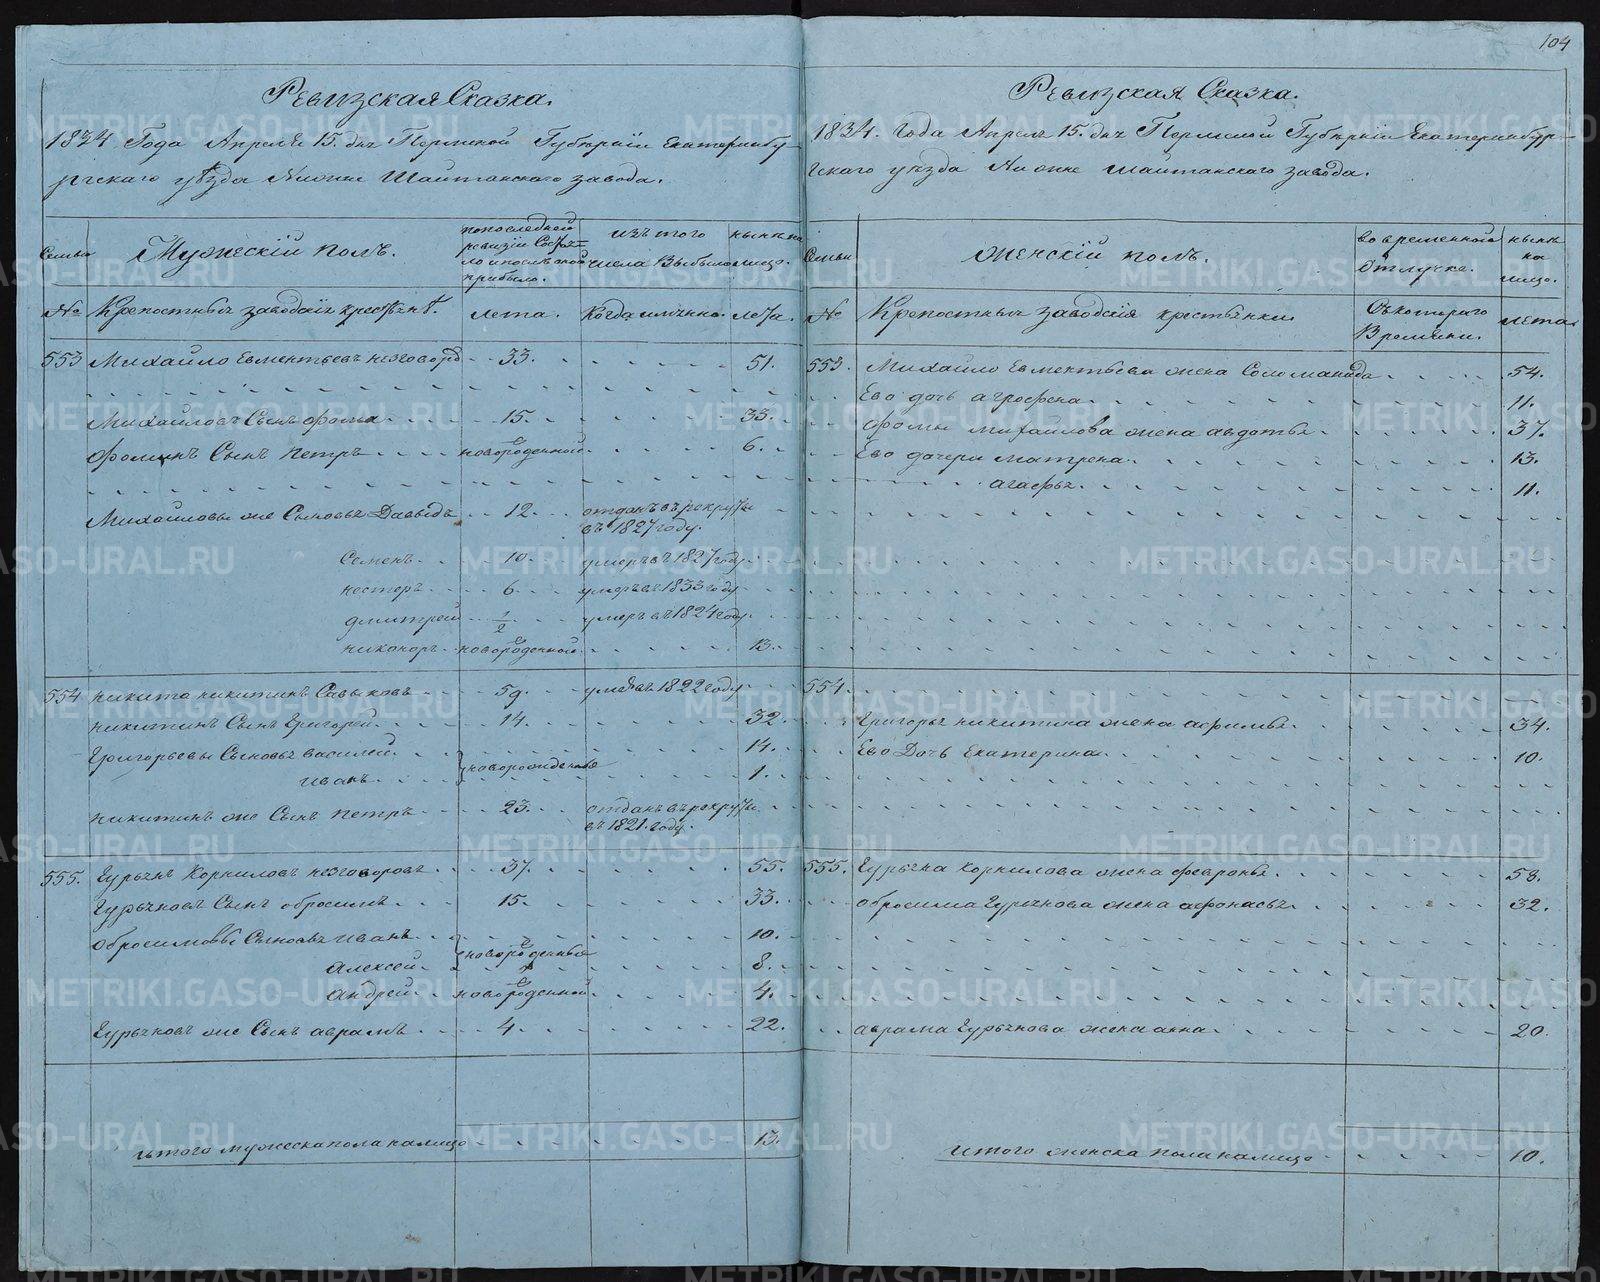 104
Ревизская Сказка.
1834 Года Апреля 15. дня Пермской Губернiи Екатеринбу
ргскаго уѣзда Нижне Шайтанскаго завода.
Семьи
Мужескiй полъ.
по последней ревизiи Состоя=ло и после оной прибыло.
изъ того числа Выбыло
ныне на лицо.
№
Крепостныя заводскiя крестьяне.
лета.
Когда имянно.
лета.
553 Михайло Евментьевъ незговоро 33. 51.
Михайловъ Сынъ фома 15. 33.
фоминъ Сынъ Петръ новорожденной 6.
Михайловы же Сыновья Давыдъ 12. отданъ въ рекруты въ 1827 году.
Семенъ 10. умеръ въ 1827 году
несторъ 6. умеръ въ 1833 году
дмитрей 1/2 умеръ въ 1824 году
никоноръ новорожденной 13.
554 никита никитинъ Савыковъ 59. умеръ въ 1822 году
никитинъ Сынъ Григорей 14. 32
Григорьевы Сыновья василей новорожденныя 14.
иванъ 1.
никитинъ же Сынъ петръ 23. отданъ въ рекруты въ 1821. году.
555. Гурьянъ Корниловъ незговоровъ 37. 55.
Гурьяновъ Сынъ обросимъ 15. 33.
Обросимовы Сыновья иванъ новорожденныя 10.
Алексей 8.
андрей новорожденной 4.
Гурьяновъ же Сынъ аврамъ 4. 22.
итого мужеска пола налицо 13.
Ревизская Сказка.
1834. года Апреля 15. дня Пермской Губернiи Екатеринбур
гскаго уезда Нижне шайтанскаго завода.
Семьи
Женскiй полъ.
во временной отлучке.
ныне на лицо.
№
Крепостныя заводскiя крестьянки.
Съ котораго Времяни.
лета.
553. Михайло Евментьева жена Соломанида 54.
Ево дочь агрофена 11.
фомы михайлова жена авдотья 37.
Ево дочери матрена 13.
агафья 11.
554.
Григорья никитина жена афимья 34.
Ево Дочь Екатерина 10.
555. Гурьяна корнилова жена февронья 58.
обросима Гурьянова жена афонасья 32.
аврама Гурьянова жена анна 20.
итого женска пола налицо 10.
METRIKI.GASO-URAL.RU